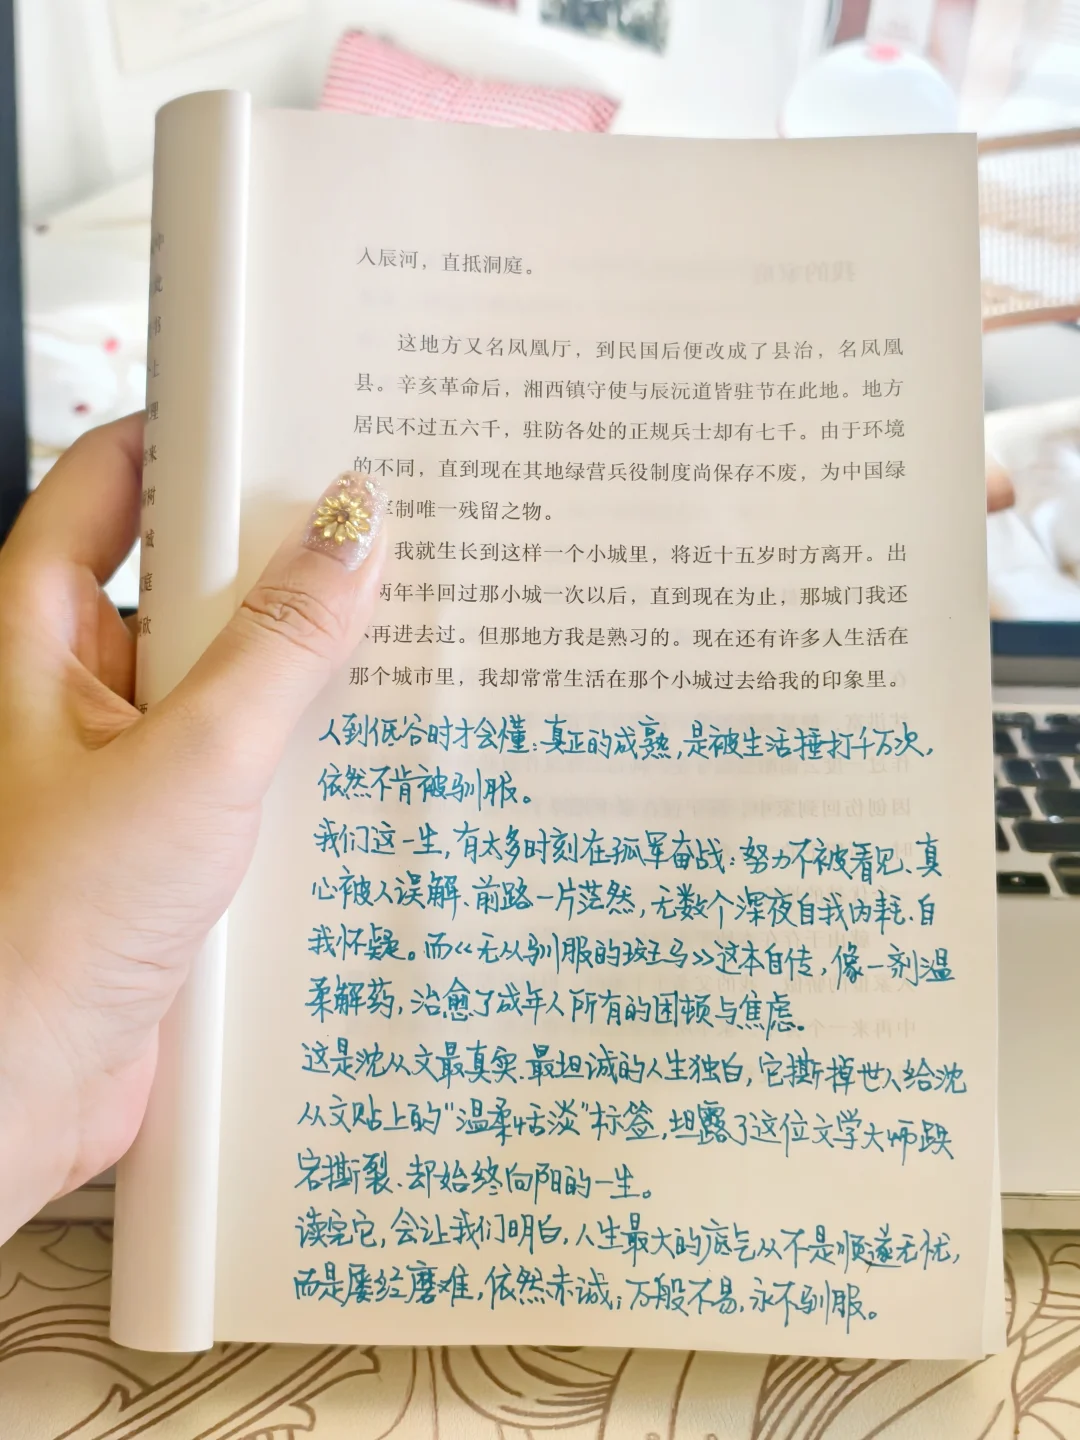 入辰河，直抵洞庭。
这地方又名凤凰厅，到民国后便改成了县治，名凤凰
县。辛亥革命后，湘西镇守使与辰沅道皆驻节在此地。地方
居民不过五六千，驻防各处的正规兵士却有七千。由于环境
的不同，直到现在其地绿营兵役制度尚保存不废，为中国绿
制唯一残留之物。
我就生长到这样一个小城里，将近十五岁时方离开。出
两年半回过那小城一次以后，直到现在为止，那城门我还
再进去过。但那地方我是熟习的。现在还有许多人生活在
那个城市里，我却常常生活在那个小城过去给我的印象里。
人到低谷时才会懂：真正的成熟，是被生活捶打千万次，
依然不肯被驯服。
我们这一生，有太多时刻在孤军奋战：努力不被看见、真
心被人误解、前路一片茫然，无数个深夜自我内耗、自
我怀疑。而《无从驯服的斑马》这本自传，像一剂温
柔解药，治愈了成年人所有的困顿与焦虑。
这是沈从文最真实、最坦诚的人生独白，它撕掉世人给沈
从文贴上的“温柔恬淡”标签，坦露了这位文学大师跌
宕撕裂、却始终向阳的一生。
读完它，会让我们明白，人生最大的底气从不是顺遂无忧，
而是屡经磨难，依然赤诚；万般不易，永不驯服。